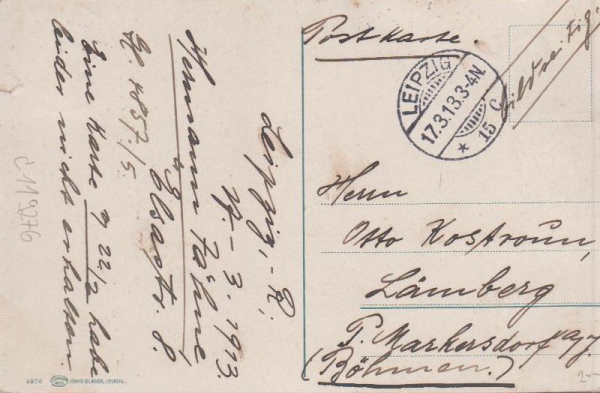 Postkarte.
Bildse. Fig.
LEIPZIG
17.3.13.3-4N.
* 15 c
Herrn
Otto Kostroun,
Lämberg
P. Markersdorf a/J.
(Böhmen.)
Leipzig, - R,
17. - 3. 1913.
Hermann Höhne
Elsastr. 8
No. 4857/5.
Eine Karte v 22/2 habe
leider nicht erhalten.
4976
LOUIS GLASER, LEIPZIG.